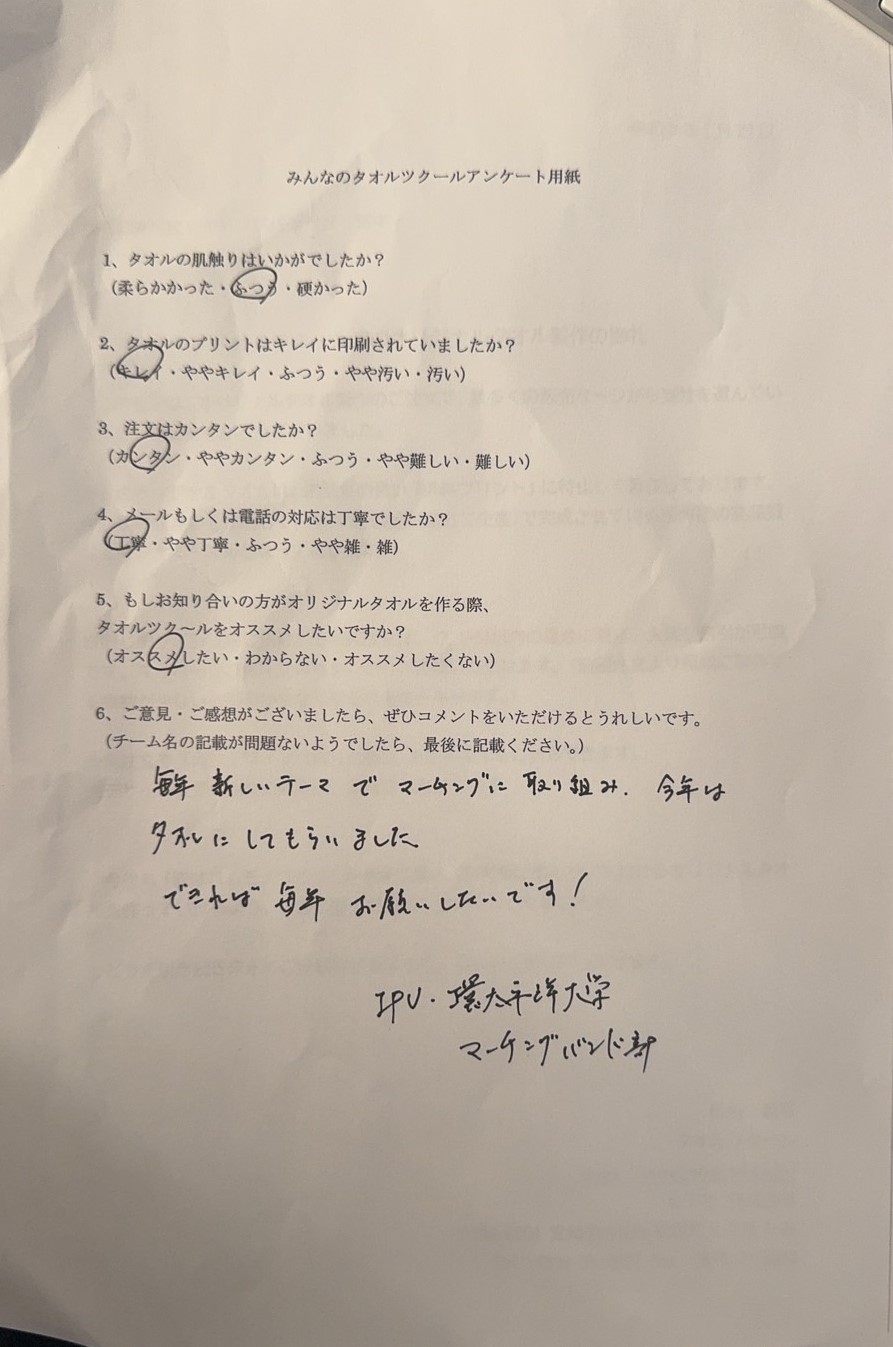 みんなのタオルツクールアンケート用紙
1、タオルの肌触りはいかがでしたか？
（柔らかかった・ふつう・硬かった）
2、タオルのプリントはキレイに印刷されていましたか？
（キレイ・ややキレイ・ふつう・やや汚い・汚い）
3、注文はカンタンでしたか？
（カンタン・ややカンタン・ふつう・やや難しい・難しい）
4、メールもしくは電話の対応は丁寧でしたか？
（丁寧・やや丁寧・ふつう・やや雑・雑）
5、もしお知り合いの方がオリジナルタオルを作る際、
タオルツク～ルをオススメしたいですか？
（オススメしたい・わからない・オススメしたくない）
6、ご意見・ご感想がございましたら、ぜひコメントをいただけるとうれしいです。
（チーム名の記載が問題ないようでしたら、最後に記載ください。）
毎年 新しいテーマで マーチングに 取り組み. 今年は
タオルにしてもらいました
できれば 毎年 お願いしたいです！
IPU・環太平洋大学
マーチングバンド部